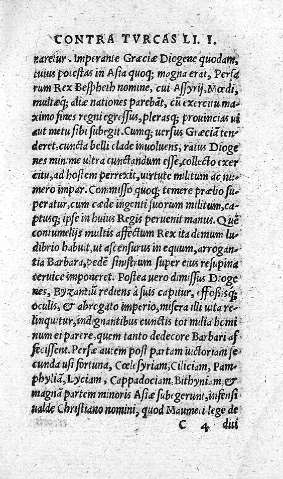 CONTRA TVRCAS LI. I.
rarelur. Imperante Græciæ Diogene quodam,
cuius potestas in Asia quoq; magna erat, Persa
rum Rex Besphelh nomine, cui Assyrij, Mœdi,
multæq; aliæ nationes parebāt, cū exercitu ma
ximo fines regni egressus, plerasq; prouincias ui
aut metu sibi subegit. Cumq; uersus Græciā ten
deret, cuncta belli clade inuoluens, ratus Dioge
nes minime ultra cunctandum esse, collecto exer
citu, ad hostem perrexit, uirtute militum ac nu
mero impar. Commisso quoq; temere prælio su
peratur, cum cæde ingenti suorum militum, cap
tusq; ipse in huius Regis peruenit manus. Quē
contumelijs multis affectum Rex ita demum lu
dibrio habuit, ut ascensurus in equum, arrogan
tia Barbara, pedē sinistrum super eius resupina
ceruice imponeret. Postea uero dimissus Dioge
nes, Byzantiū rediens à suis capitur, effoßisq;
oculis, & abrogato imperio, misera illi uita re
linquitur, indignantibus cunctis tot milia homi
num et parere, quem tanto dedecore Barbari af
fecissent. Persæ autem post partam uictoriam se
cunda usi fortuna, Cœlesyriam, Ciliciam, Pam
phyliā, Lyciam, Cappadociam, Bithyniam, &
magnā partem minoris Asiæ subegerunt, infensi
ualde Christiano nomini, quod Maumeti lege de
C 4 diui